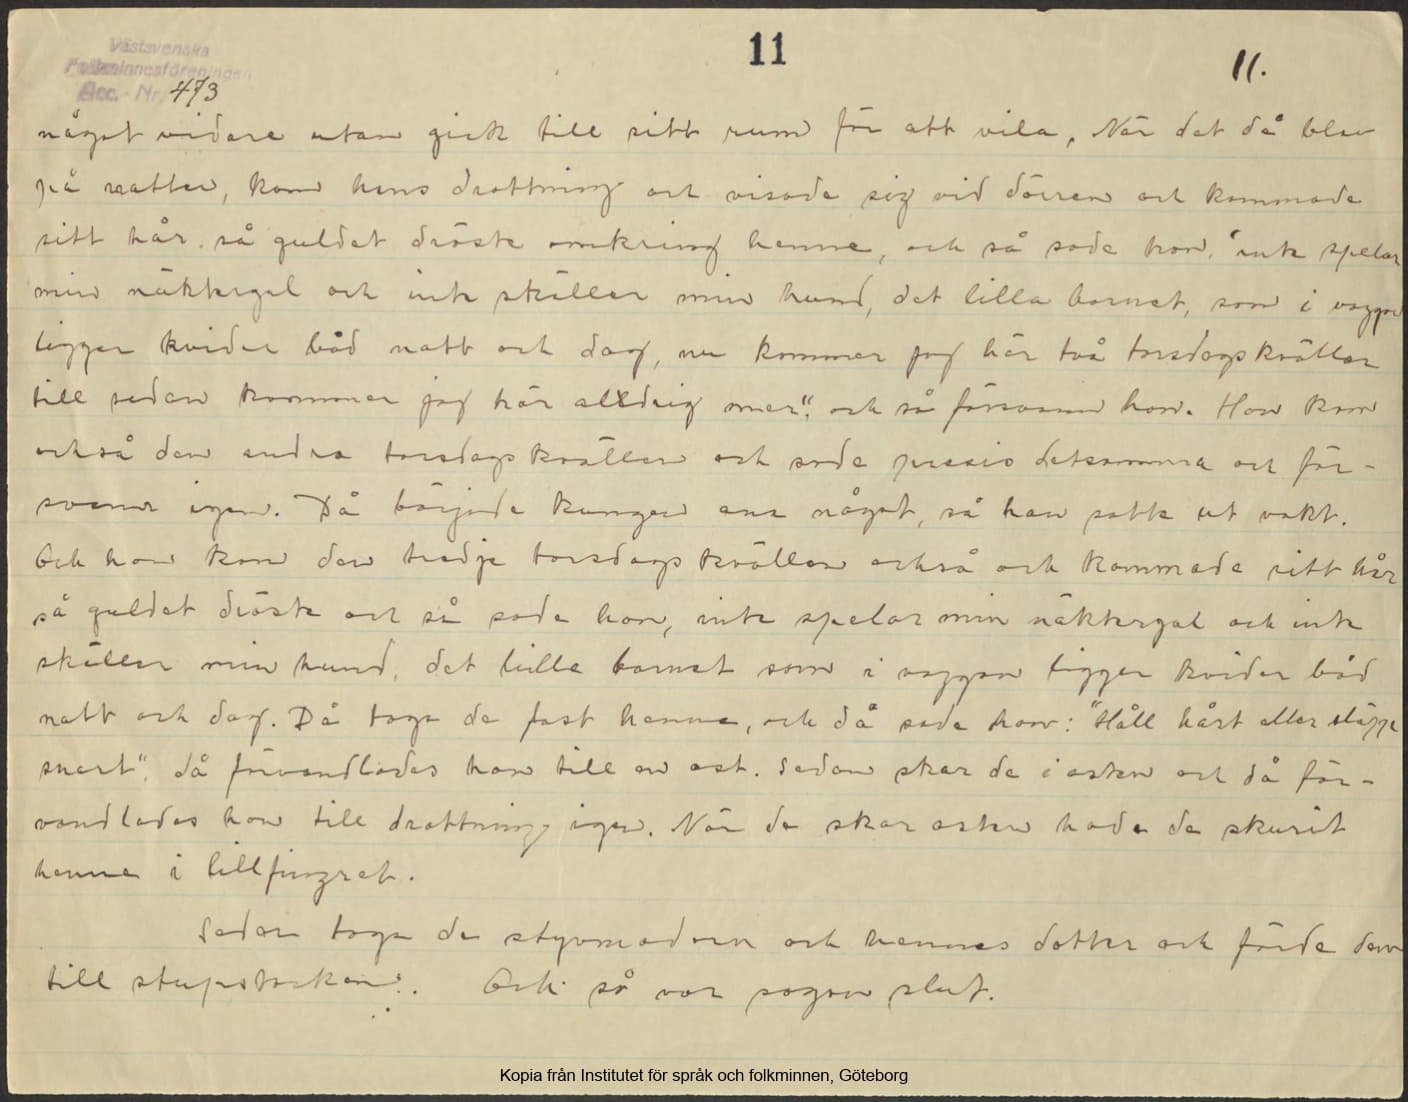 11
11.
Västsvenska
Folkminnesföreningen
Acc. - Nr. 473
något vidare utan gick till sitt rum för att vila. När det då blev
på natten, kom hans drottning och visade sig vid dörren och kammade
sitt hår så guldet dröste omkring henne, och så sade hon, "inte spelar
min näktergal och inte skäller min hund, det lilla barnet, som i vaggan
ligger kvider båd natt och dag, nu kommer jag här två torsdagskvällar
till sedan kommer jag här alldrig mer", och så försvann hon. Hon kom
också den andra torsdagskvällen och sade presis detsamma och för-
svann igen. Då började kungen ana något, så han satte ut vakt.
Och hon kom den tredje torsdagskvällen också och kammade sitt hår
så guldet dröste och så sade hon, inte spelar min näktergal och inte
skäller min hund, det lilla barnet som i vaggan ligger kvider båd
natt och dag. Då toga de fast henne, och då sade hon: "Håll hårt eller släpp
snart". då förvandlades hon till en ost. Sedan skar de i osten och då för-
vandlades hon till drottning igen. När de skar osten hade de skurit
henne i lillfingret.
Sedan toga de styvmodern och hennes dotter och förde dem
till stupstocken. Och så var sagan slut.
Kopia från Institutet för språk och folkminnen, Göteborg